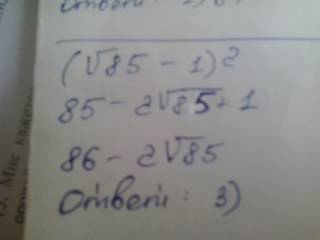 (√85 - 1)²
85 - 2√85 + 1
86 - 2√85
Ответ: 3)